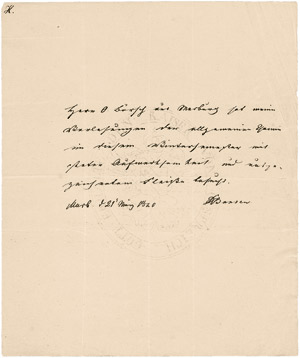 K.
Herr O Bursch aus Marburg hat meine
Vorlesungen über allgemeine Chemie
in diesem Wintersemester mit
steter Aufmerksamkeit und ausge-
zeichnetem Fleiße besucht.
Marb d 21 März 18
RBunsen